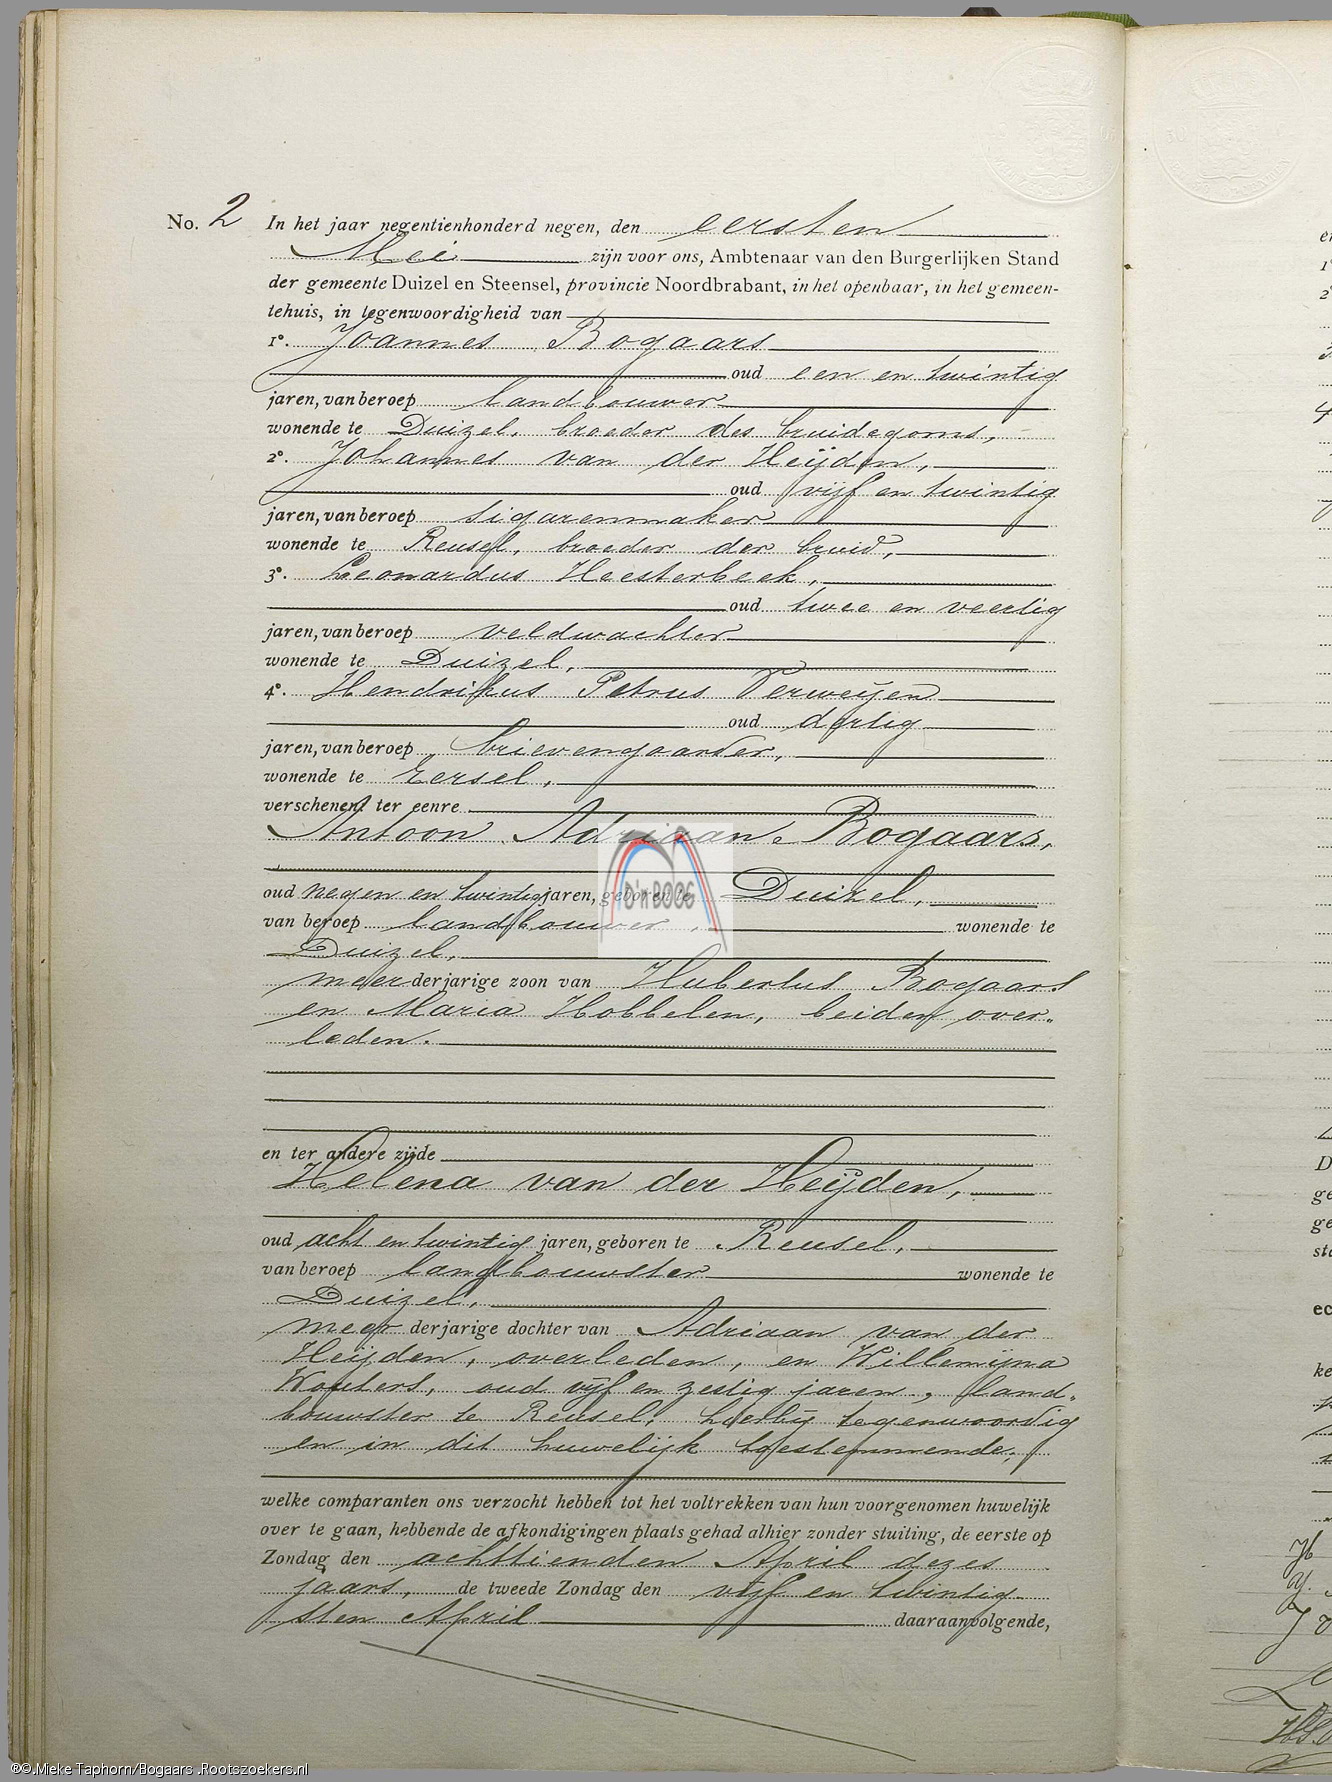 No. 2 In het jaar negentienhonderd negen, den eersten
Mei zijn voor ons, Ambtenaar van den Burgerlijken Stand
der gemeente Duizel en Steensel, provincie Noordbrabant, in het openbaar, in het gemeen-
tehuis, in tegenwoordigheid van
1º. Joannes Bogaars
oud een en twintig
jaren, van beroep landbouwer
wonende te Duizel, broeder des bruidegoms,
2º. Johannes van der Heijden,
oud vijf en twintig
jaren, van beroep sigarenmaker
wonende te Reusel, broeder der bruid,
3º. Leonardus Heesterbeek,
oud twee en veertig
jaren, van beroep veldwachter
wonende te Duizel,
4º. Hendrikus Petrus Verweijen
oud dertig
jaren, van beroep brievengaarder,
wonende te Eersel,
verschenen ter eenre
Antoon Adriaan Bogaars,
oud negen en twintig jaren, geboren te Duizel,
van beroep landbouwer, wonende te
Duizel,
meerderjarige zoon van Hubertus Bogaars
en Maria Hobbelen, beiden over-
leden.
en ter andere zijde
Helena van der Heijden,
oud acht en twintig jaren, geboren te Reusel,
van beroep landbouwster wonende te
Duizel,
meerderjarige dochter van Adriaan van der
Heijden, overleden, en Willemijna
Wouters, oud vijf en zestig jaren, land-
bouwster te Reusel, hierbij tegenwoordig
en in dit huwelijk toestemmende;
welke comparanten ons verzocht hebben tot het voltrekken van hun voorgenomen huwelijk
over te gaan, hebbende de afkondigingen plaats gehad alhier zonder stuiting, de eerste op
Zondag den achttienden April dezes
jaars, de tweede Zondag den vijf en twintig-
sten April daaraanvolgende,
D'n BOOG
®©.Mieke Taphorn/Bogaars .Rootszoekers.nl